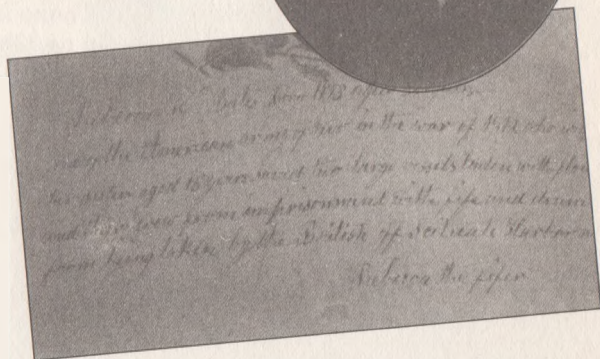 Rebecca W. Bates born 1793 aged
one of the American army of two in the war of 1812 who with
her sister aged 15 years saved two large vessels laden with flour
and their crew from imprisonment with fife and drum
from being taken by the British off Scituate Harbor
Rebecca the fifer